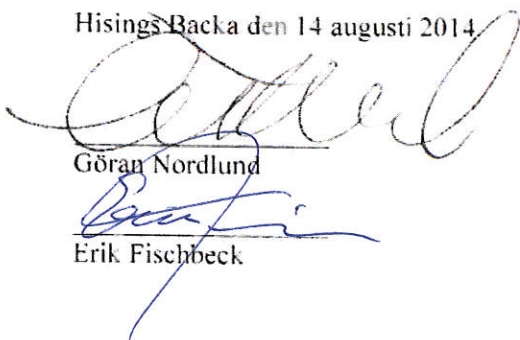 Hisings Backa den 14 augusti 2014
Göran Nordlund
Erik Fischbeck